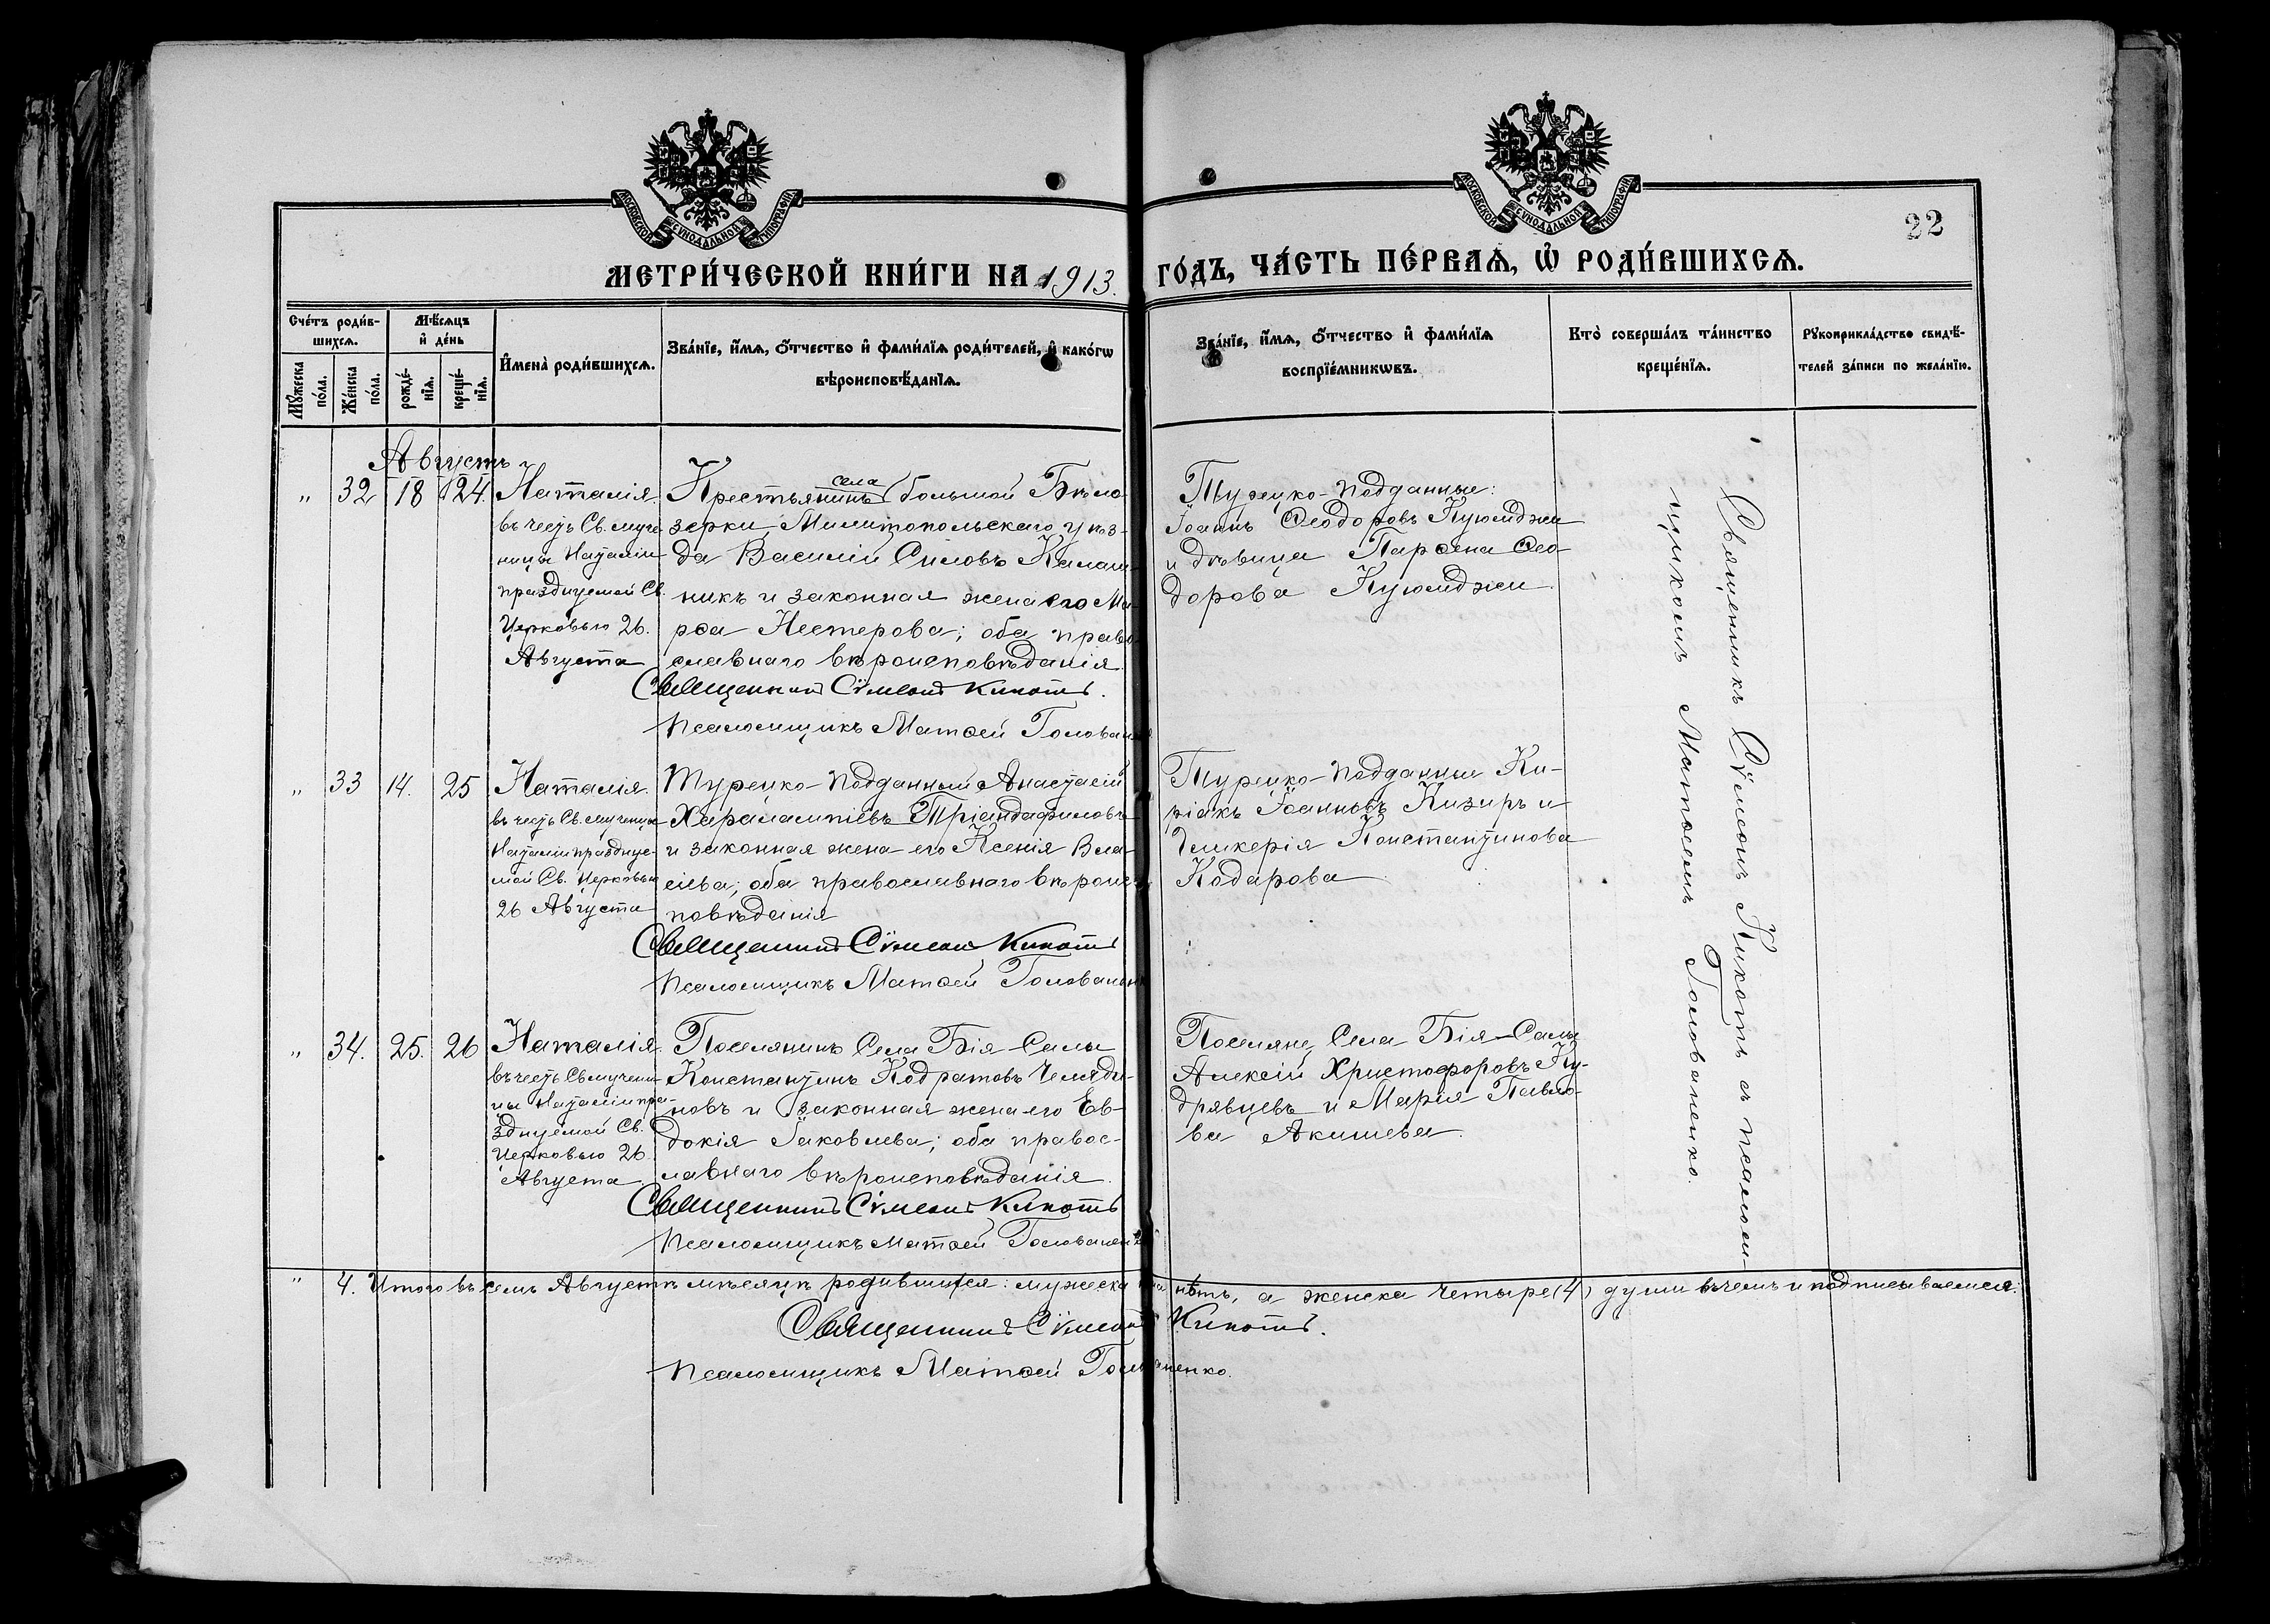 МОСКОВСКОЙ СУНОДАЛЬНОЙ ТИПОГРАФІИ
МОСКОВСКОЙ СУНОДАЛЬНОЙ ТИПОГРАФІИ
22
МЕТРИ́ЧЕСКОЙ КНИ́ГИ НА 1913.
ГО́ДЪ, ЧА́СТЬ ПЕ́РВАѦ, Ѡ҆ РОДИ́ВШИХСѦ.
Сче́тъ роди́в-
шихсѧ.
Мꙋ́жеска
по́ла.
Же́нска
по́ла.
Мѣ́сѧцъ
и҆ де́нь
рожде́-
нїѧ.
креще́-
нїѧ.
И҆мена̀ роди́вшихсѧ.
Зва́нїе, и҆́мѧ, ѻ҆́тчество и҆ фами́лїѧ роди́телей, и҆ како́гѡ
вѣроисповѣ́данїѧ.
Зва́нїе, и҆́мѧ, ѻ҆́тчество и҆ фами́лїѧ
воспрїе́мникѡвъ.
Кто̀ соверша́лъ та́инство
креще́нїѧ.
Рꙋкоприкла́дство свидѣ́-
телей за́писи по жела́нїю.
Августъ
„ 32 18 24. Наталія.
въ честь Св. муче-
ницы Наталіи
празднуемой Св.
Церковью 26.
Августа
села
Крестьянинъ большой Бѣло-
зерки Мелитопольскаго уѣз-
да Василій Силовъ Калаш-
никъ и законная жена его Ма-
рѳа Нестерова; оба право-
славнаго вѣроисповѣданія
Священникъ Сѵмеонъ Кикоть.
Псаломщикъ Матѳей Голованенко
Турецко-подданные:
Іоаннъ Ѳеодоровъ Куюмджи
и дѣвица Парѳена Ѳео-
дорова Куюмджи
„ 33 14. 25 Наталія.
въ честь Св. мученицы
Наталіи праздну-
мой Св. Церковью
26 Августа
Турецко-подданный Анастасій
Харалампіевъ Тріандафиловъ
и законная жена его Ксенія Вла-
сіева; оба православнаго вѣроис-
повѣданія
Священникъ Сѵмеонъ Кикоть
Псаломщикъ Матѳей Голованенко
Турецко-подданные Ки-
ріакъ Іоанновъ Кизиръ и
Гликерія Константинова
Кодарова
„ 34. 25. 26 Наталія.
въ честь Св. мучени-
цы Наталіи пра-
зднуемой Св.
Церковью 26.
Августа.
Поселянинъ Села Бія-Салы
Константинъ Кодратовъ Челяди-
новъ и законная жена его Ев-
докія Іаковлева; оба правос-
лавнаго вѣроисповѣданія.
Священникъ Сѵмеонъ Кикоть
Псаломщикъ Матѳей Голованенко
Поселяне Села Бія-Салы
Алексій Христофоровъ Ку-
дрявцевъ и Марія Павло-
ва Акишева.
Священникъ Сѵмеонъ Кикоть съ псалом-
щикомъ Матѳеемъ Голованенко.
„ 4. Итого въ семъ Августѣ мѣсяцѣ родившихся: мужеска нѣтъ, а женска четыре (4) души въ чемъ и подписываемся:
Священникъ Сѵмеонъ Кикоть.
Псаломщикъ Матѳей Голованенко.